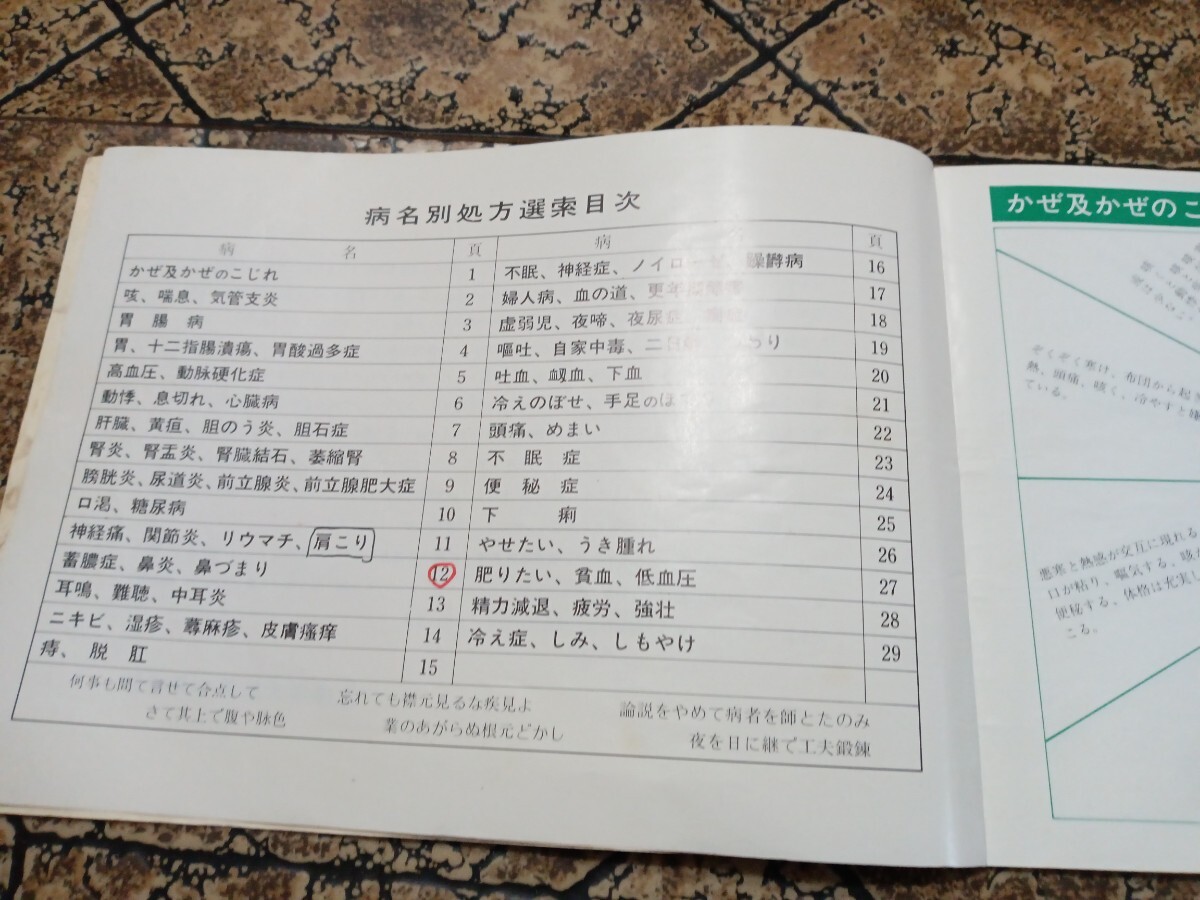 病名別処方選索目次
病 名 頁 病 頁
かぜ及かぜのこじれ 1 不眠、神経症、ノイローゼ、躁欝病 16
咳、喘息、気管支炎 2 婦人病、血の道、更年 17
胃 腸 病 3 虚弱児、夜啼、夜尿症、 18
胃、十二指腸潰瘍、胃酸過多症 4 嘔吐、自家中毒、二日 19
高血圧、動脉硬化症 5 吐血、衂血、下血 20
動悸、息切れ、心臓病 6 冷えのぼせ、手足のほ 21
肝臓、黄疸、胆のう炎、胆石症 7 頭痛、めまい 22
腎炎、腎盂炎、腎臓結石、萎縮腎 8 不 眠 症 23
膀胱炎、尿道炎、前立腺炎、前立腺肥大症 9 便 秘 症 24
口渇、糖尿病 10 下 痢 25
神経痛、関節炎、リウマチ、肩こり 11 やせたい、うき腫れ 26
蓄膿症、鼻炎、鼻づまり 12 肥りたい、貧血、低血圧 27
耳鳴、難聴、中耳炎 13 精力減退、疲労、強壮 28
ニキビ、湿疹、蕁麻疹、皮膚瘙痒 14 冷え症、しみ、しもやけ 29
痔、脱 肛 15
何事も問て言せて合点して
さて其上で腹や脉色
忘れても襟元見るな疾見よ
業のあがらぬ根元どかし
論説をやめて病者を師とたのみ
夜を日に継で工夫鍛錬
かぜ及かぜのこ
ぞくぞく寒け、布団から起き
熱、頭痛、咳く、冷やすと
ている。
悪寒と熱感が交互に現れる
口が粘り、嘔気する、咳
便秘する、体格は充実し
こる。